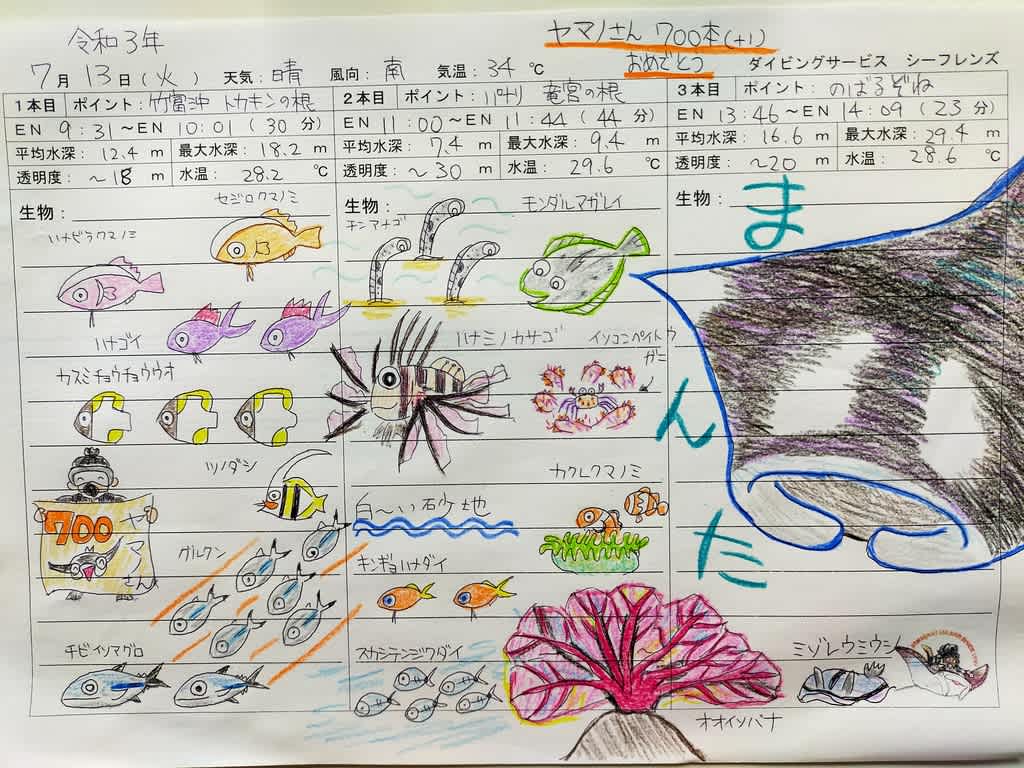 令和3年
ヤマノさん 700本(+1)
おめでとう
7月13日(火) 天気:晴 風向:南 気温:34℃ ダイビングサービス シーフレンズ
1本目 ポイント:竹富沖 トカキンの根
EN 9:31～EN 10:01(30分)
平均水深:12.4m 最大水深:18.2m
透明度:～18m 水温:28.2℃
生物:
セジロクマノミ
ハナビラクマノミ
ハナゴイ
カスミチョウチョウウオ
ツノダシ
700 ヤマノさん
グルクン
チビイソマグロ
2本目 ポイント:パナリ 竜宮の根
EN 11:00～EN 11:44(44分)
平均水深:7.4m 最大水深:9.4m
透明度:～30m 水温:29.6℃
生物:
モンダルマガレイ
チンアナゴ
ハナミノカサゴ
イソコンペイトウガニ
カクレクマノミ
白～い砂地
キンギョハナダイ
スカシテンジクダイ
オオイソバナ
3本目 ポイント:のばるぞね
EN 13:46～EN 14:09(23分)
平均水深:16.6m 最大水深:29.4m
透明度:～20m 水温:28.6℃
生物:
まんた
ミゾレウミウシ